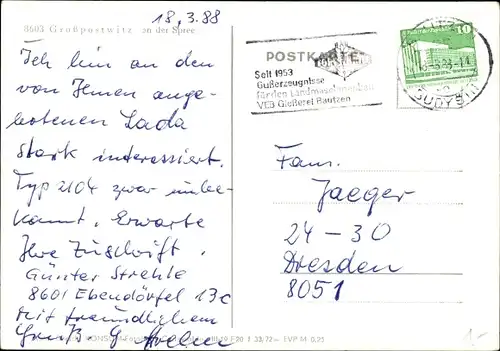 18.3.88
8603 Großpostwitz an der Spree
Ich bin an den
von Ihnen ange-
botenen Lada
stark interessiert.
Typ 2104 zwar unbe-
kannt. Erwarte
Ihre Zuschrift.
Günter Strehle
8601 Ebendörfel 13c
Mit freundlichem
Gruß G. Strehle
POSTKARTE
Seit 1953
Gußerzeugnisse
für den Landmaschinenbau
VEB Gießerei Bautzen
10
BUDYŠIN
Fam.
Jaeger
24-30
Dresden
8051
KONSUM
EVP M 0,25